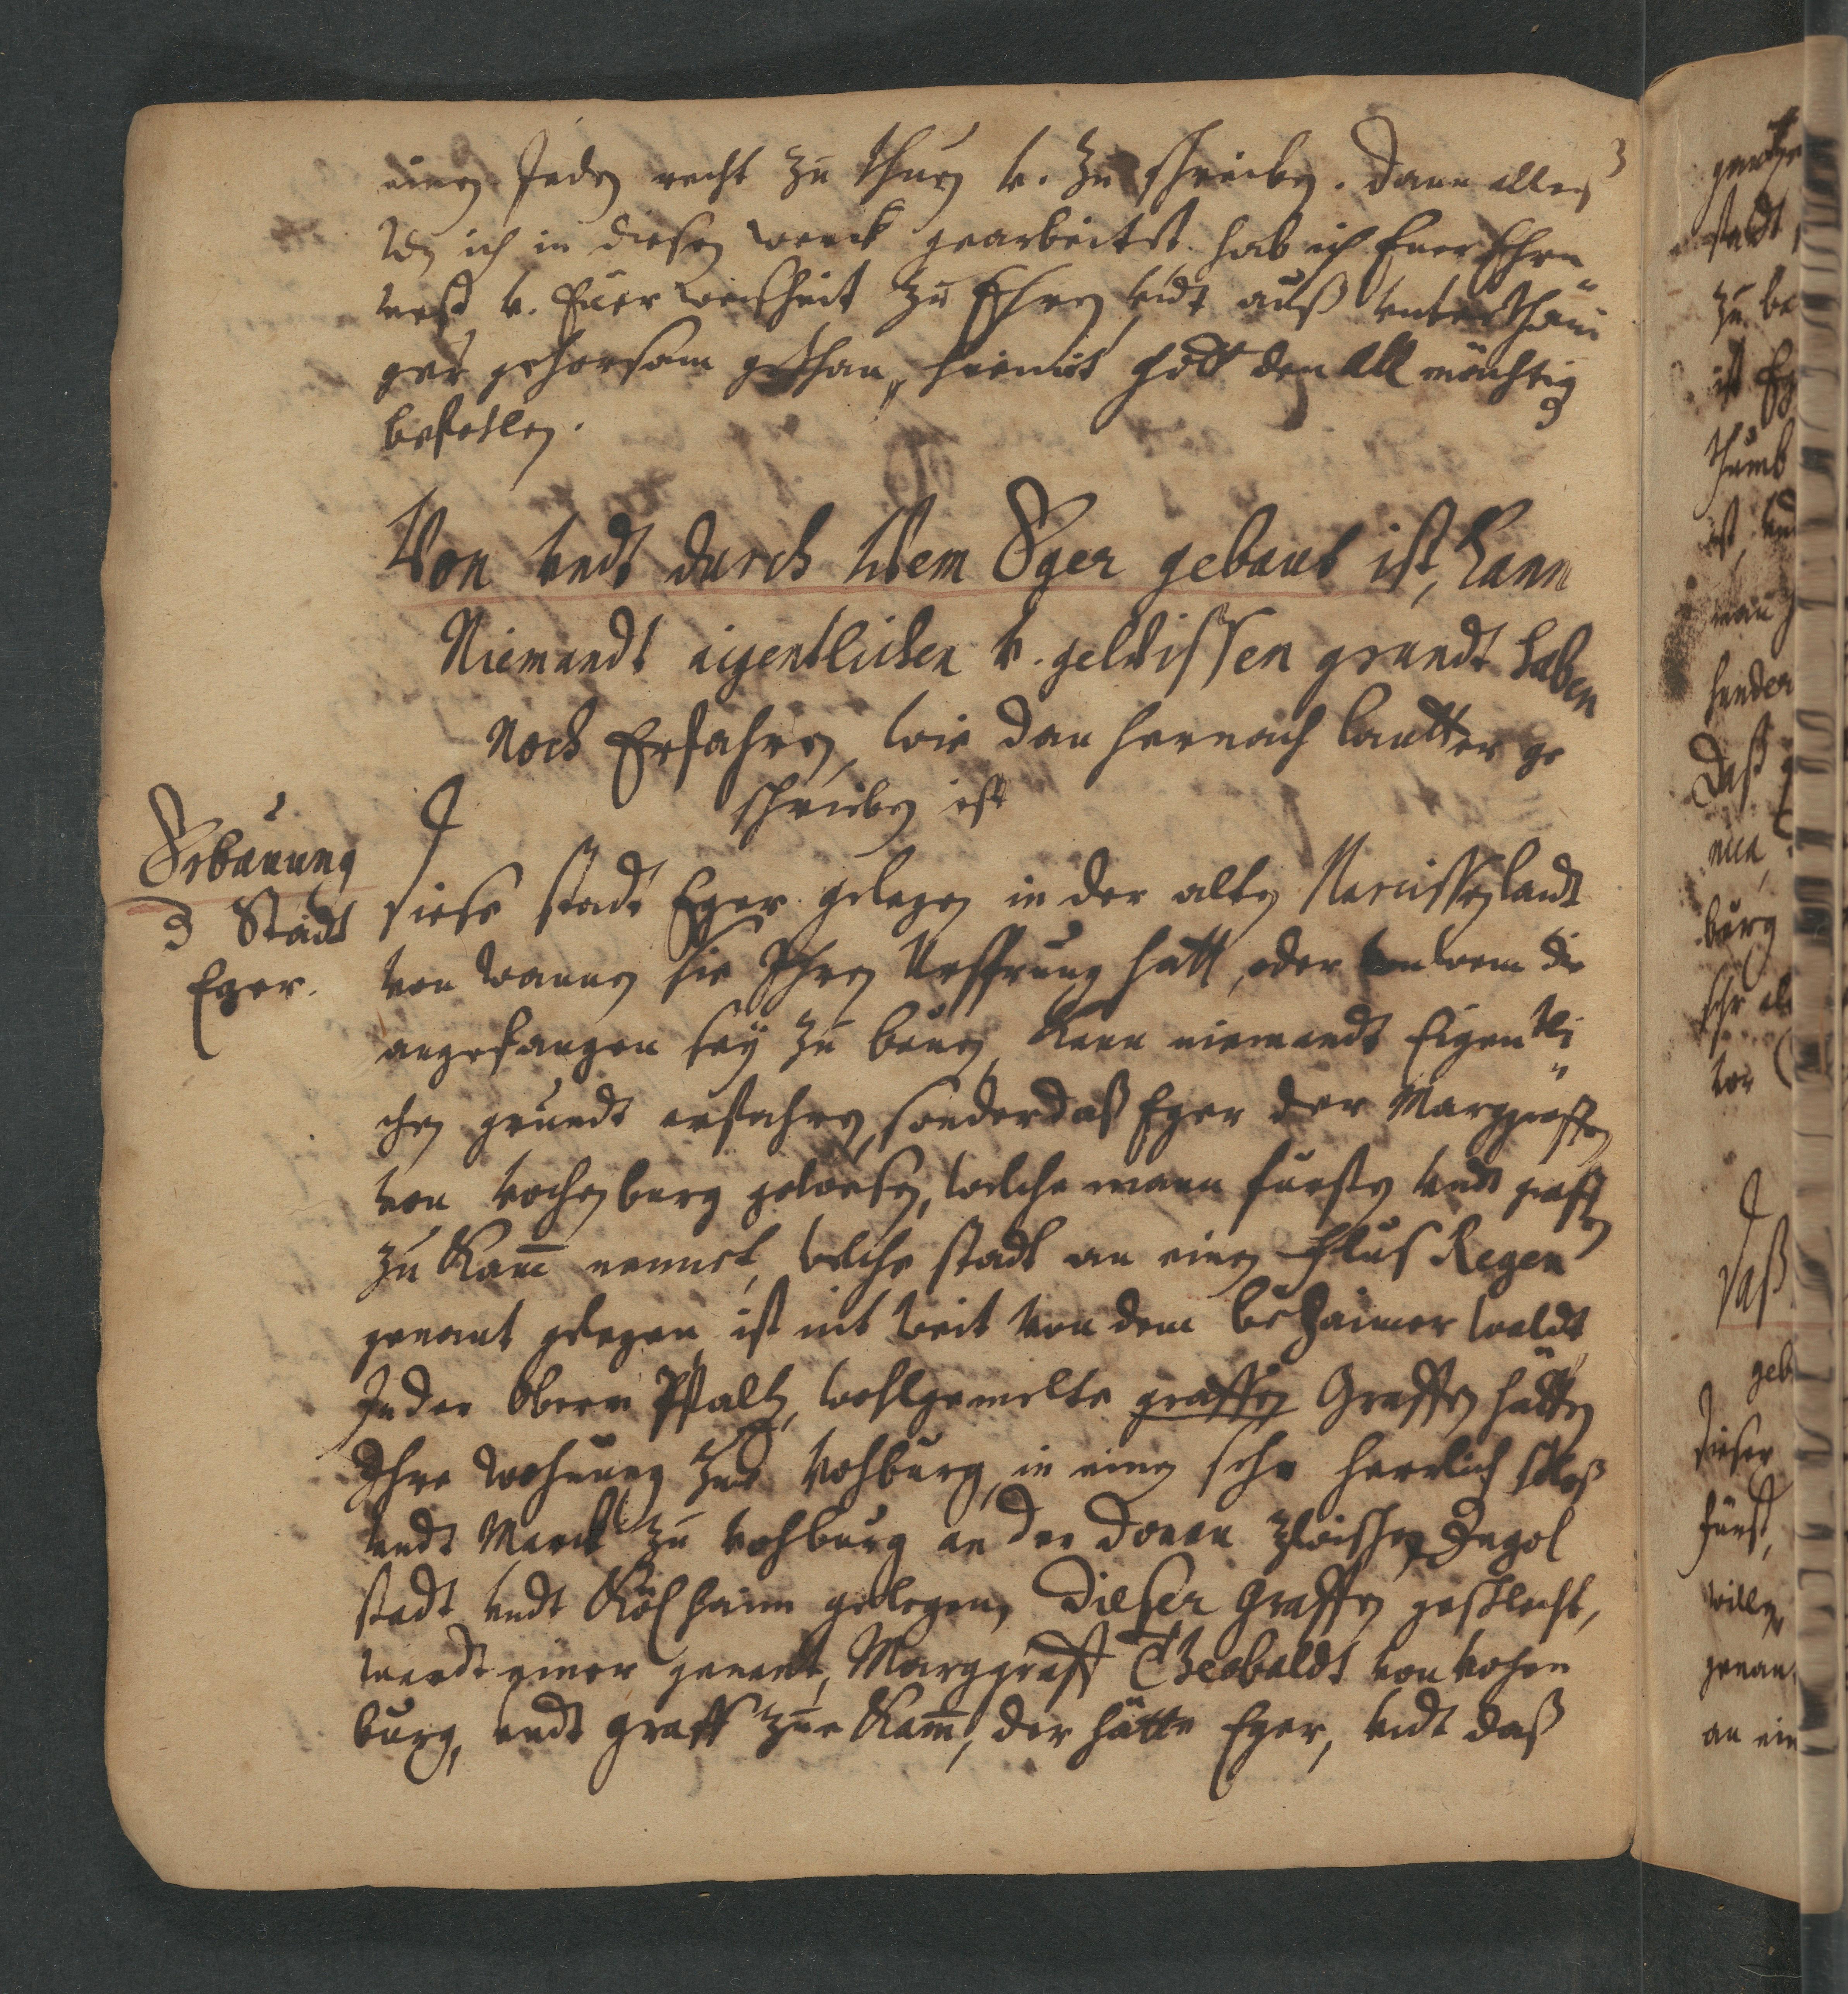 3
einen Jeden recht zu thun v. zu schreiben. Dann alles
Wz ich in diesen werck gearbeitet hab ich Euer Ehrn
vest v. Euer weisheit zu Ehren vndt auß unterthäni
ger gehorsam gethan, hiemit Gott den Allmächtig
befohlen.
Von vndt durch Wem Eger gebaut ist, Kann
Niemandt eigentlichen v. gewissen grundt haben
Noch Erfahren, wie dan hernach lautter ge
schrieben ist
Erbauung
d Stadt
Eger.
Diese stadt Eger gelegen in der alten Narcissen landt
von wannen sie Ihren Ursprung hatt, oder von wem die
angefangen seÿ zu bauen, Kann niemandt Eigentli
chen grundt erfahren, sonder daß Eger der Marggraffen
von vochenburg gewesen, welche mann fursten vndt graffen
zu Kam̅ nennet, welche stadt an einen Flus Regen
genant gelegen ist nit weit von dem behaimer waldt
In der Obern Pfaltz, wohlgemelte graffen Graffen hatten
Ihre wohnung zue Vohburg, in einen sehr herrlich schloß
vndt Marck zu vohburg an der donau zwischen Ingol
stadt vndt Kölhaim gelegen, Dieser Graffen geschlecht,
wardt einer genant, Marggraff Theobaldt von vohen
burg, vndt graff zue Kam̅, der hatte Eger, vndt daß